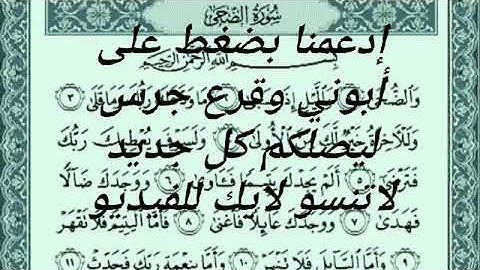 سُورَةُ الضُّحَىٰ
بِسْمِ اللَّهِ الرَّحْمَٰنِ الرَّحِيمِ
إدعمنا بضغط على
أبوني وقرع جرس
ليصلكم كل جديد
لاتنسو لايك للفيديو
وَالضُّحَىٰ وَاللَّيْلِ إِذَا وَمَا قَلَىٰ ٣
وَلَلْآخِرَةُ خَيْرٌ لَّكَ مِنَ الْأُولَىٰ ٤ وَلَسَوْفَ يُعْطِيكَ رَبُّكَ
فَتَرْضَىٰ ٥ أَلَمْ يَجِدْكَ يَتِيمًا فَـَٔاوَىٰ ٦ وَوَجَدَكَ ضَآلًّا
فَهَدَىٰ ٧ وَوَجَدَكَ عَآئِلًا فَأَغْنَىٰ ٨ فَأَمَّا الْيَتِيمَ فَلَا تَقْهَرْ
٩ وَأَمَّا السَّآئِلَ فَلَا تَنْهَرْ ١٠ وَأَمَّا بِنِعْمَةِ رَبِّكَ فَحَدِّثْ ١١